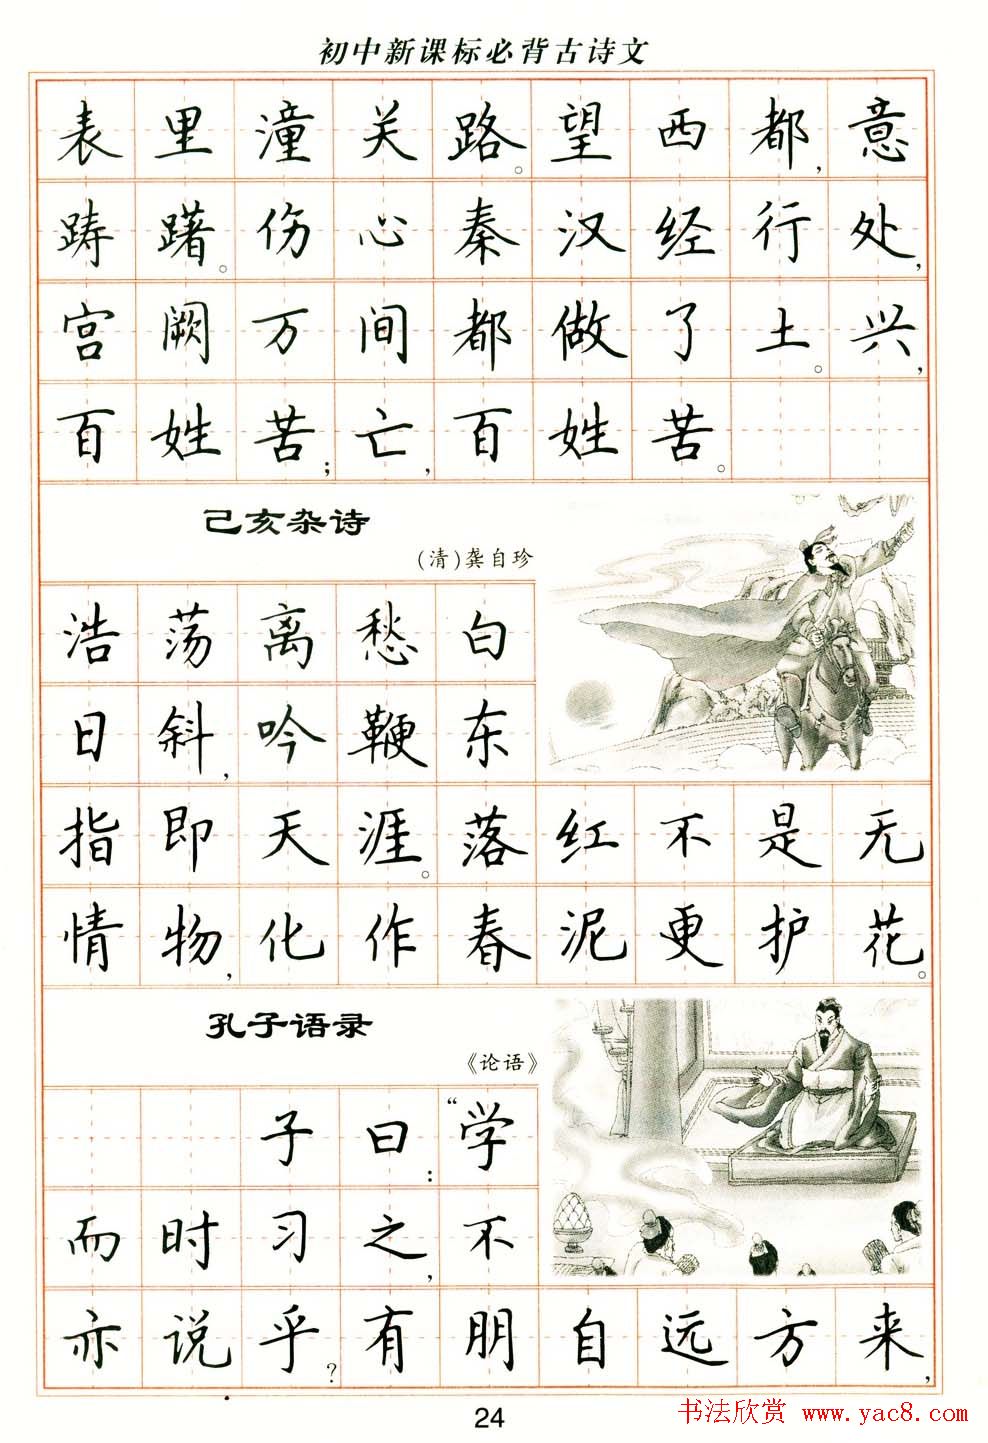 初中新课标必背古诗文
表里潼关路。望西都,意
踌躇。伤心秦汉经行处,
宫阙万间都做了土。兴,
百姓苦;亡,百姓苦。
己亥杂诗
(清)龚自珍
浩荡离愁白
日斜,吟鞭东
指即天涯。落红不是无
情物,化作春泥更护花。
孔子语录
《论语》
子曰:“学
而时习之,不
亦说乎?有朋自远方来,
24
书法欣赏 www.yac8.com